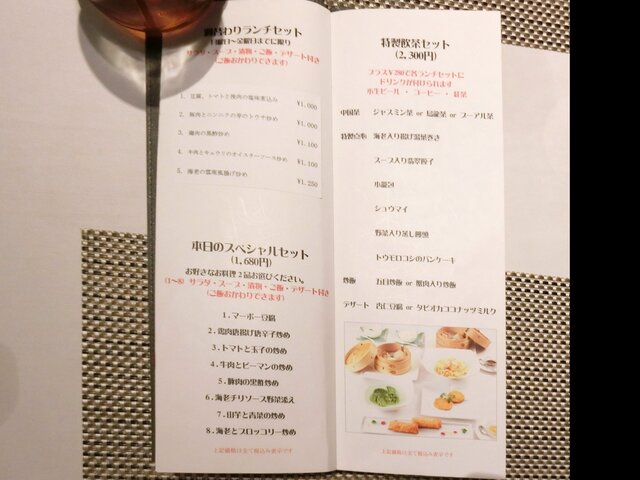 週替わりランチセット
月曜日～金曜日までに限り
サラダ・スープ・漬物・ご飯・デザート付き
(ご飯おかわりできます)
1. 豆腐、トマトと挽肉の塩味煮込み
¥1,000
2. 豚肉とニンニクの芽のトウチ炒め
¥1,000
3. 鶏肉の黒酢炒め
¥1,100
4. 牛肉とキュウリのオイスターソース炒め
¥1,100
5. 海老の雲南風揚げ炒め
¥1,250
本日のスペシャルセット
(1,680円)
お好きなお料理2品お選びください。
(1～8) サラダ・スープ・漬物・ご飯・デザート付き
(ご飯おかわりできます)
1.マーボー豆腐
2.鶏肉唐揚げ唐辛子炒め
3.トマトと玉子の炒め
4.牛肉とピーマンの炒め
5.豚肉の黒酢炒め
6.海老チリソース野菜添え
7.田芋と青菜の炒め
8.海老とブロッコリー炒め
上記価格は全て税込み表示です
特製飲茶セット
(2,300円)
プラス¥280で各ランチセットに
ドリンクが付けられます
小生ビール ・ コーヒー ・ 紅茶
中国茶 ジャスミン茶 or 烏龍茶 or プーアル茶
特製点心 海老入り揚げ湯葉巻き
スープ入り翡翠餃子
小籠包
シュウマイ
野菜入り蒸し饅頭
トウモロコシのパンケーキ
炒飯 五目炒飯 or 蟹肉入り炒飯
デザート 杏仁豆腐 or タピオカココナッツミルク
上記価格は全て税込み表示です